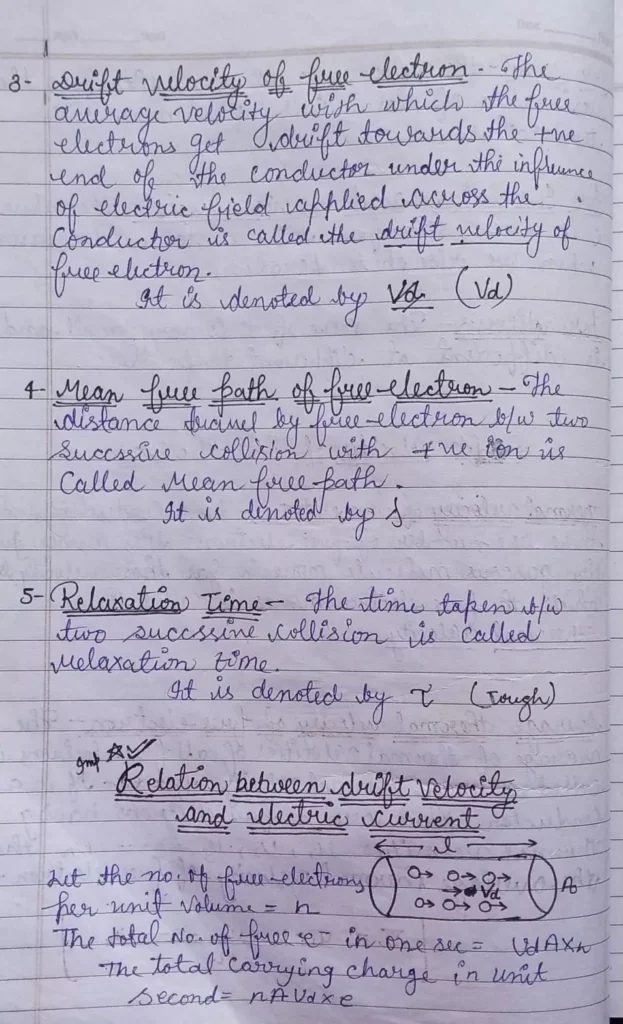 3- Drift velocity of free electron - The
average velocity with which the free
electrons get drift towards the +ve
end of the conductor under the influence
of electric field applied across the
Conductor is called the drift velocity of
free electron.
It is denoted by Vd (Vd)
4- Mean free path of free-electron - The
distance by free-electron b/w two
Succssive collision with +ve ion is
Called Mean free path.
It is denoted by
5- Relaxation Time - The time taken b/w
two succssive collision is called
relaxation time.
It is denoted by τ (Tough)
Imp
Relation between drift velocity
and electric current
l
Let the no. of free-electrons
per unit volume = n
A
Vd
The total No. of free e- in one sec = VdA×n
The total carrying charge in unit
second = nAVd×e